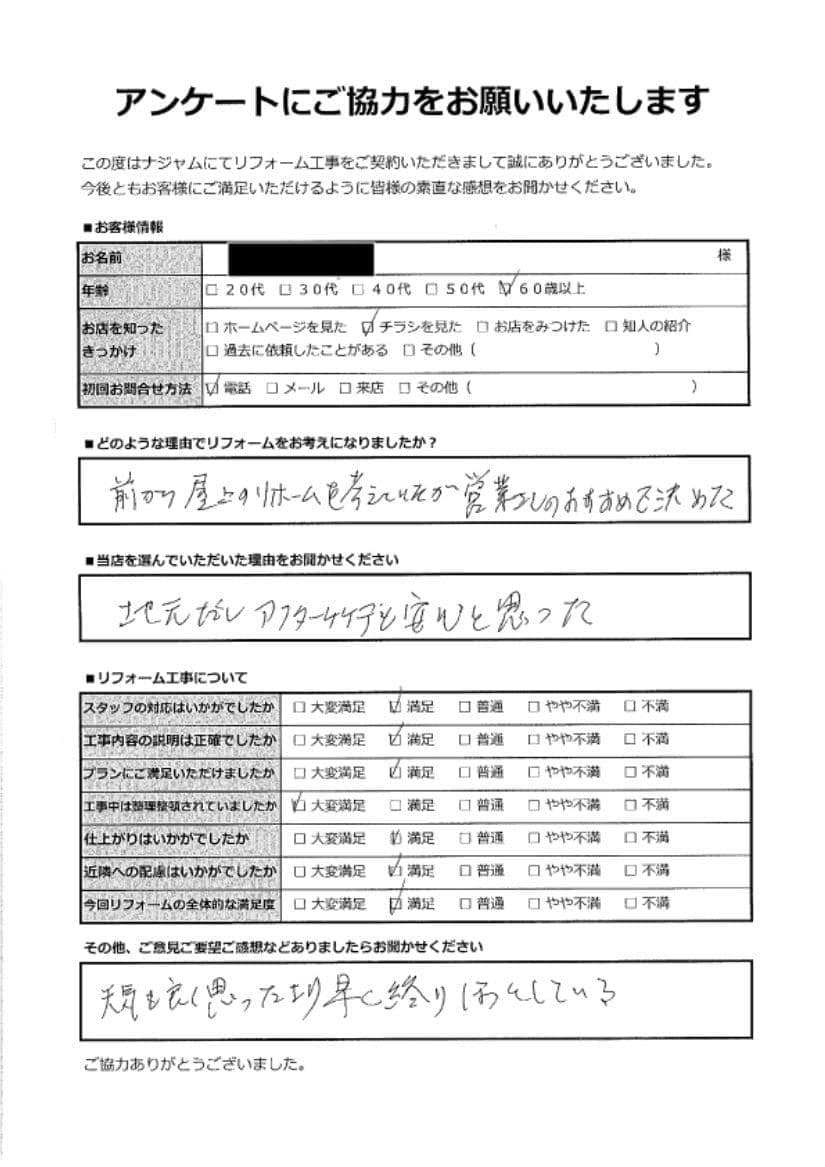 アンケートにご協力をお願いいたします
この度はナジャムにてリフォーム工事をご契約いただきまして誠にありがとうございました。
今後ともお客様にご満足いただけるように皆様の素直な感想をお聞かせください。
■お客様情報
お名前 様
年齢 □20代 □30代 □40代 □50代 ☑60歳以上
お店を知った □ホームページを見た ☑チラシを見た □お店をみつけた □知人の紹介
きっかけ □過去に依頼したことがある □その他( )
初回お問合せ方法 ☑電話 □メール □来店 □その他( )
■どのような理由でリフォームをお考えになりましたか?
前から屋上のリホームを考えていたが営業さんのおすすめで決めた
■当店を選んでいただいた理由をお聞かせください
地元だしアフターケアも安心と思った
■リフォーム工事について
スタッフの対応はいかがでしたか □大変満足 ☑満足 □普通 □やや不満 □不満
工事内容の説明は正確でしたか □大変満足 ☑満足 □普通 □やや不満 □不満
プランにご満足いただけましたか □大変満足 ☑満足 □普通 □やや不満 □不満
工事中は整理整頓されていましたか ☑大変満足 □満足 □普通 □やや不満 □不満
仕上がりはいかがでしたか □大変満足 ☑満足 □普通 □やや不満 □不満
近隣への配慮はいかがでしたか □大変満足 ☑満足 □普通 □やや不満 □不満
今回リフォームの全体的な満足度 □大変満足 ☑満足 □普通 □やや不満 □不満
その他、ご意見ご要望ご感想などありましたらお聞かせください
天気も良く思ったより早く終りほっとしている
ご協力ありがとうございました。